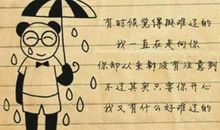 有时候觉得挺难过的
我一直在走向你
你却从来都没有注意到
不过其实只要你开心
我又有什么好难过的